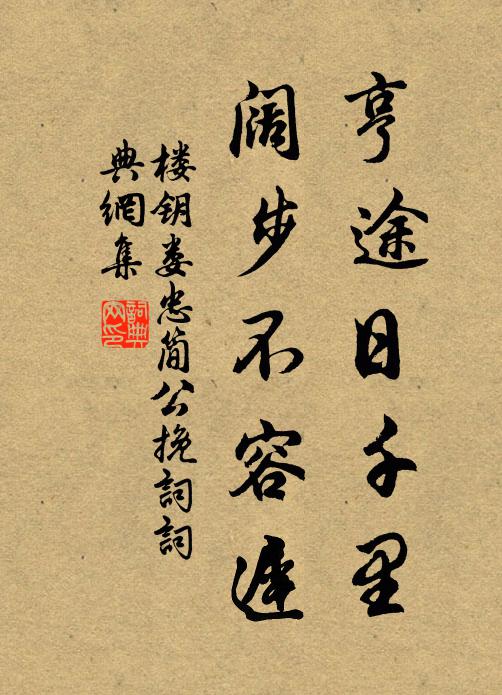 亨途日千里
阔步不容遲
楼钥娄忠简公挽詞詞
典網集
詞典
网印